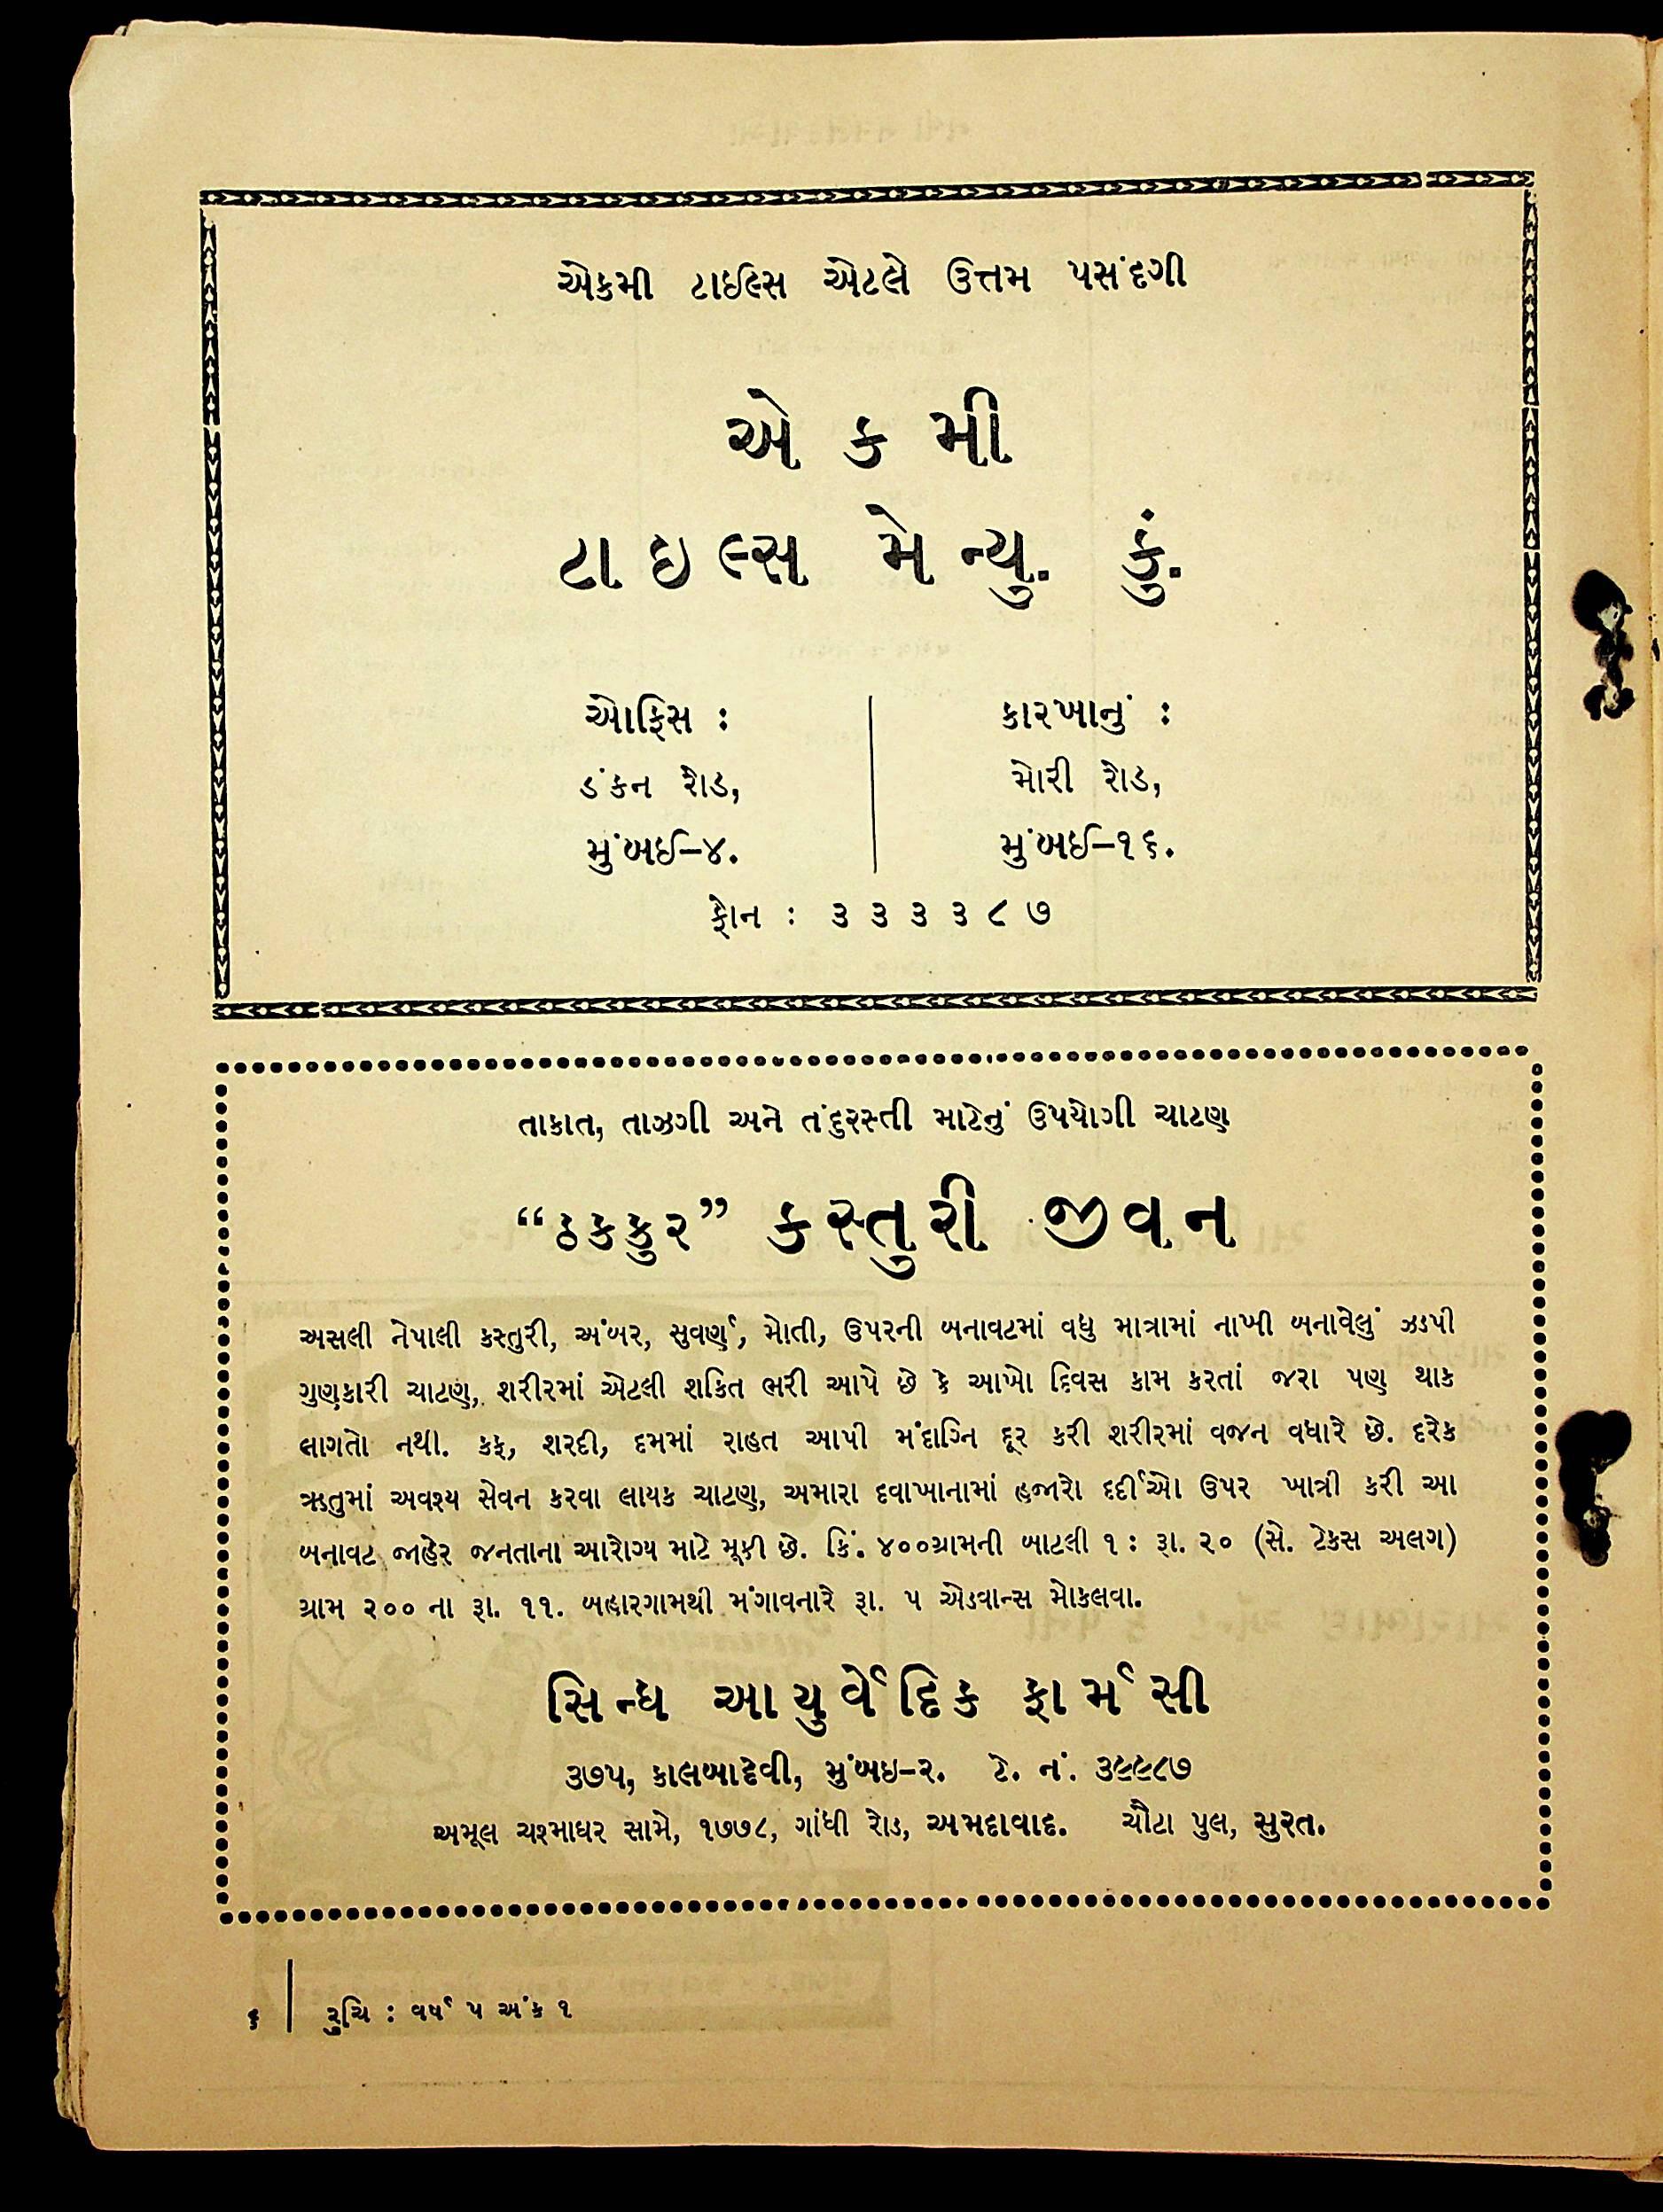 એકમી ટાઇલ્સ એટલે ઉત્તમ પસંદગી
એ ક મી
ટા ઇ લ્સ મે ન્યુ. કું.
ઓફિસ :
ડંકન રોડ,
મુંબઈ–૪.
કારખાનું :
મોરી રોડ,
મુંબઈ–૧૬.
ફોન : ૩ ૩ ૩ ૩ ૮ ૭
તાકાત, તાઝગી અને તંદુરસ્તી માટેનું ઉપયોગી ચાટણ
“ઠકકુર” કસ્તુરી જીવન
અસલી નેપાલી કસ્તુરી, અંબર, સુવર્ણ, મોતી, ઉપરની બનાવટમાં વધુ માત્રામાં નાખી બનાવેલું ઝડપી
ગુણકારી ચાટણ, શરીરમાં એટલી શકિત ભરી આપે છે કે આખો દિવસ કામ કરતાં જરા પણ થાક
લાગતો નથી. કફ, શરદી, દમમાં રાહત આપી મંદાગ્નિ દૂર કરી શરીરમાં વજન વધારે છે. દરેક
ઋતુમાં અવશ્ય સેવન કરવા લાયક ચાટણ, અમારા દવાખાનામાં હજારો દર્દીઓ ઉપર ખાત્રી કરી આ
બનાવટ જાહેર જનતાના આરોગ્ય માટે મૂકી છે. કિં. ૪૦૦ગ્રામની બાટલી ૧ : રૂા. ૨૦ (સે. ટેકસ અલગ)
ગ્રામ ૨૦૦ ના રૂા. ૧૧. બહારગામથી મંગાવનારે રૂા. ૫ એડવાન્સ મોકલવા.
સિન્ધ આયુર્વેદિક ફાર્મસી
૩૭૫, કાલબાદેવી, મુંબઇ–૨. ટે. નં. ૩૯૯૮૭
અમૂલ ચશ્માઘર સામે, ૧૭૭૮, ગાંધી રોડ, અમદાવાદ. ચૌટા પુલ, સુરત.
૬ | રુચિ : વર્ષ ૫ અંક ૧